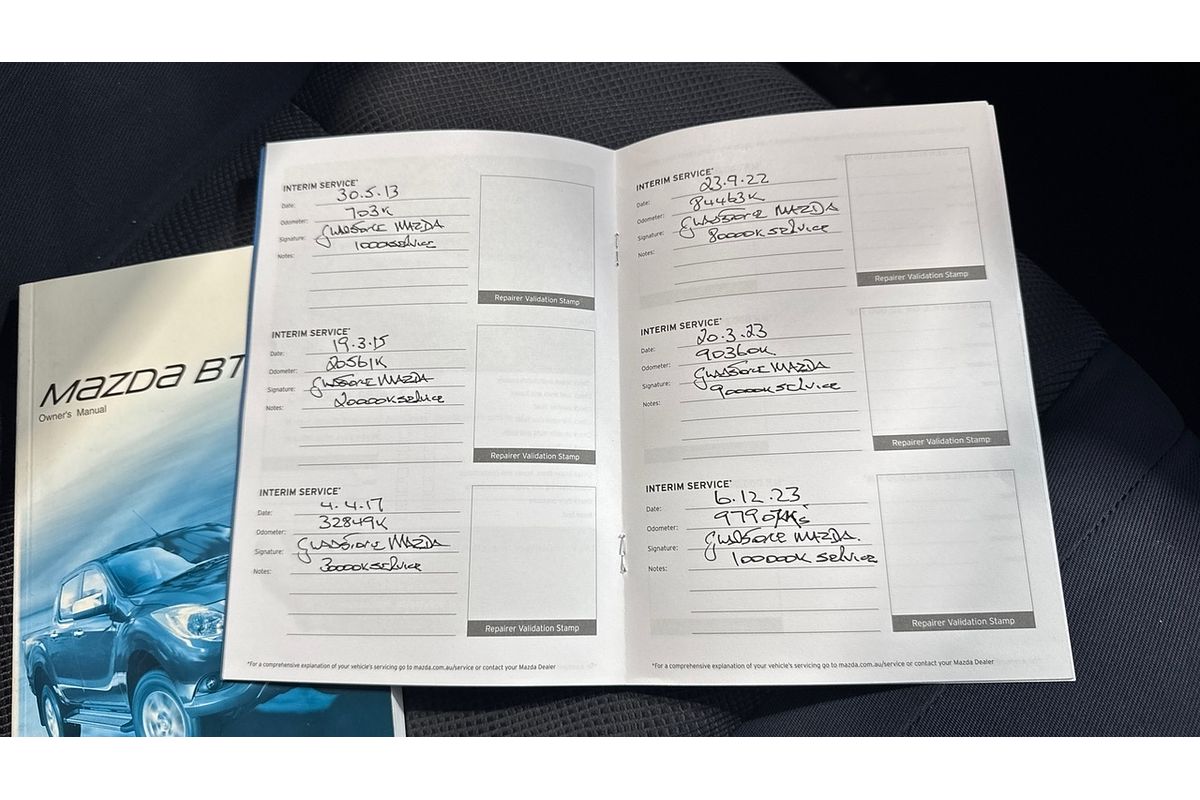 MAZDA BT
Owner's Manual
INTERIM SERVICE*
Date: 30.5.13
Odometer: 703K
Signature: GLADSTONE MAZDA
Notes: 1000 service
Repairer Validation Stamp
INTERIM SERVICE*
Date: 19.3.15
Odometer: 20561K
Signature: GLADSTONE MAZDA
Notes: 20000K service
Repairer Validation Stamp
INTERIM SERVICE*
Date: 4.4.17
Odometer: 32849K
Signature: GLADSTONE MAZDA
Notes: 30000K service
Repairer Validation Stamp
*For a comprehensive explanation of your vehicle's servicing go to mazda.com.au/service or contact your Mazda Dealer
INTERIM SERVICE*
Date: 23.9.22
Odometer: 84463K
Signature: GLADSTONE MAZDA
Notes: 80000K service
Repairer Validation Stamp
INTERIM SERVICE*
Date: 20.3.23
Odometer: 90360K
Signature: GLADSTONE MAZDA
Notes: 90000K service
Repairer Validation Stamp
INTERIM SERVICE*
Date: 6.12.23
Odometer:
Signature: GLADSTONE MAZDA.
Notes: 100000K service
Repairer Validation Stamp
*For a comprehensive explanation of your vehicle's servicing go to mazda.com.au/service or contact your Mazda Dealer